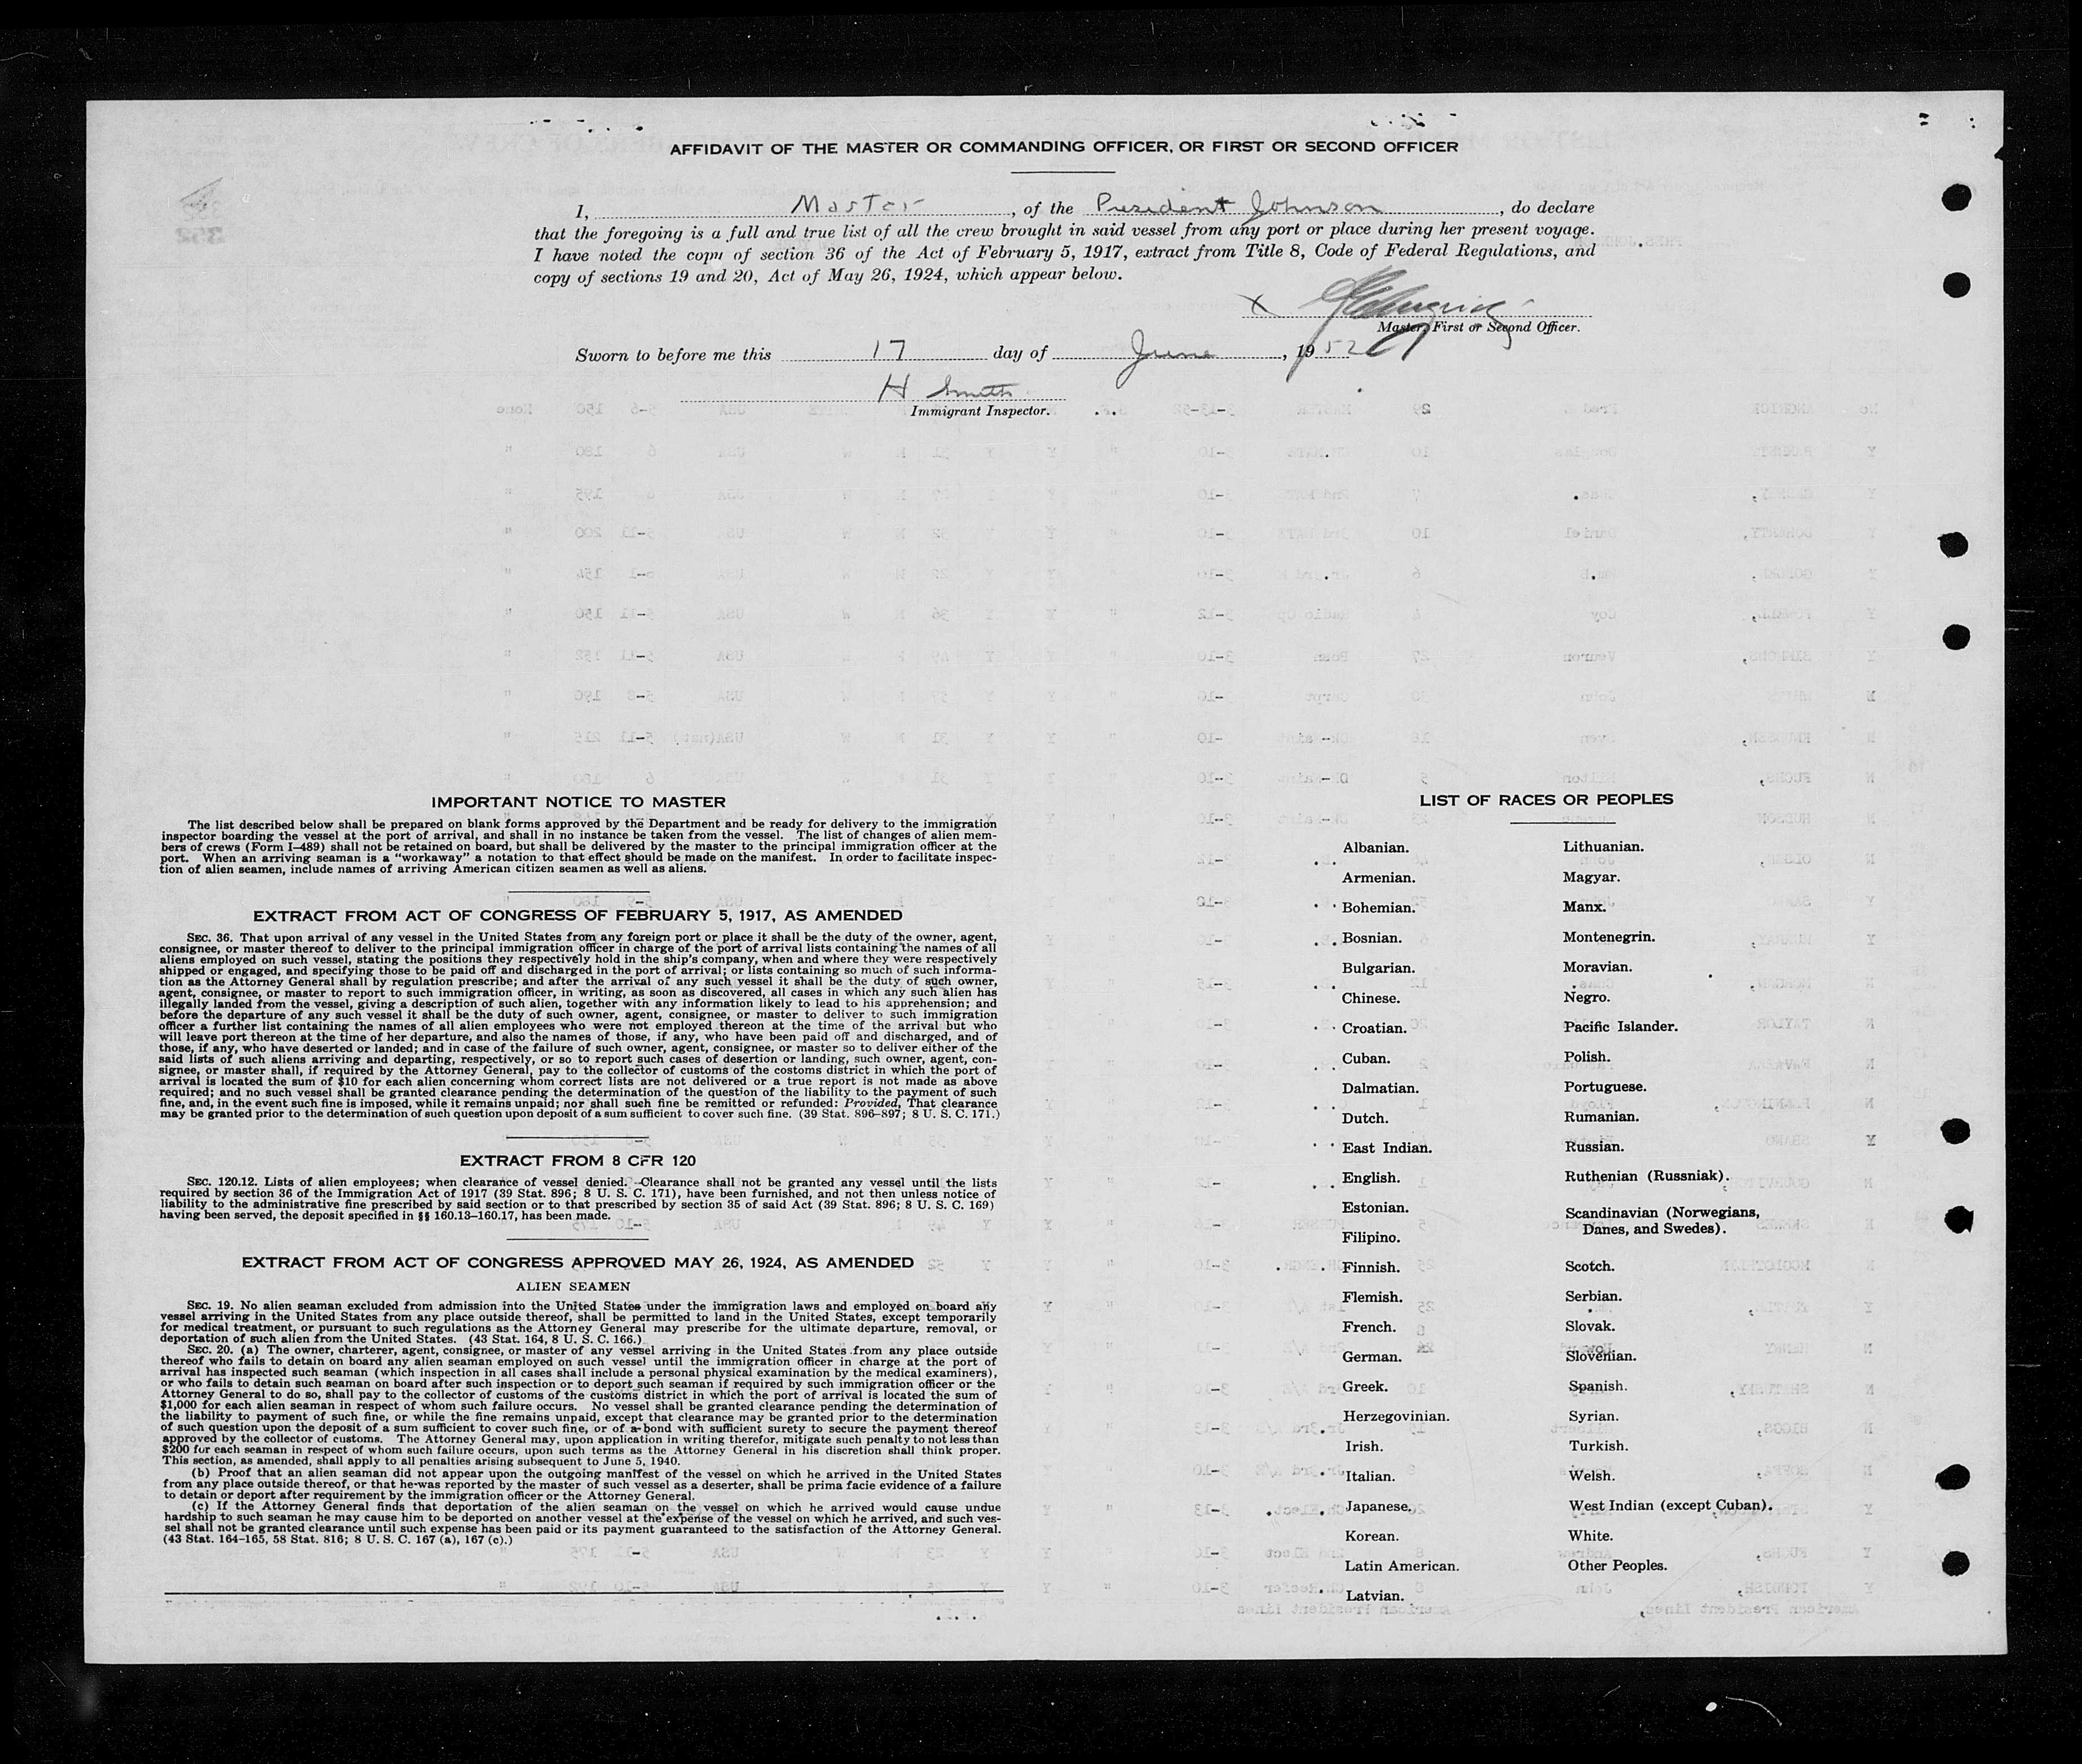 AFFIDAVIT OF THE MASTER OR COMMANDING OFFICER, OR FIRST OR SECOND OFFICER
I, Master, of the President Johnson, do declare
that the foregoing is a full and true list of all the crew brought in said vessel from any port or place during her present voyage.
I have noted the copy of section 36 of the Act of February 5, 1917, extract from Title 8, Code of Federal Regulations, and
copy of sections 19 and 20, Act of May 26, 1924, which appear below.
X
Master, First or Second Officer.
Sworn to before me this 17 day of June, 1952
H Smith
Immigrant Inspector.
IMPORTANT NOTICE TO MASTER
The list described below shall be prepared on blank forms approved by the Department and be ready for delivery to the immigration
inspector boarding the vessel at the port of arrival, and shall in no instance be taken from the vessel. The list of changes of alien mem-
bers of crews (Form I-489) shall not be retained on board, but shall be delivered by the master to the principal immigration officer at the
port. When an arriving seaman is a "workaway" a notation to that effect should be made on the manifest. In order to facilitate inspec-
tion of alien seamen, include names of arriving American citizen seamen as well as aliens.
EXTRACT FROM ACT OF CONGRESS OF FEBRUARY 5, 1917, AS AMENDED
SEC. 36. That upon arrival of any vessel in the United States from any foreign port or place it shall be the duty of the owner, agent,
consignee, or master thereof to deliver to the principal immigration officer in charge of the port of arrival lists containing the names of all
aliens employed on such vessel, stating the positions they respectively hold in the ship's company, when and where they were respectively
shipped or engaged, and specifying those to be paid off and discharged in the port of arrival; or lists containing so much of such informa-
tion as the Attorney General shall by regulation prescribe; and after the arrival of any such vessel it shall be the duty of such owner,
agent, consignee, or master to report to such immigration officer, in writing, as soon as discovered, all cases in which any such alien has
illegally landed from the vessel, giving a description of such alien, together with any information likely to lead to his apprehension; and
before the departure of any such vessel it shall be the duty of such owner, agent, consignee, or master to deliver to such immigration
officer a further list containing the names of all alien employees who were not employed thereon at the time of the arrival but who
will leave port thereon at the time of her departure, and also the names of those, if any, who have been paid off and discharged, and of
those, if any, who have deserted or landed; and in case of the failure of such owner, agent, consignee, or master so to deliver either of the
said lists of such aliens arriving and departing, respectively, or so to report such cases of desertion or landing, such owner, agent, con-
signee, or master shall, if required by the Attorney General, pay to the collector of customs of the costoms district in which the port of
arrival is located the sum of $10 for each alien concerning whom correct lists are not delivered or a true report is not made as above
required; and no such vessel shall be granted clearance pending the determination of the question of the liability to the payment of such
fine, and, in the event such fine is imposed, while it remains unpaid; nor shall such fine be remitted or refunded: Provided, That clearance
may be granted prior to the determination of such question upon deposit of a sum sufficient to cover such fine. (39 Stat. 896-897; 8 U. S. C. 171.)
EXTRACT FROM 8 CFR 120
SEC. 120.12. Lists of alien employees; when clearance of vessel denied.—Clearance shall not be granted any vessel until the lists
required by section 36 of the Immigration Act of 1917 (39 Stat. 896; 8 U. S. C. 171), have been furnished, and not then unless notice of
liability to the administrative fine prescribed by said section or to that prescribed by section 35 of said Act (39 Stat. 896; 8 U. S. C. 169)
having been served, the deposit specified in §§ 160.13-160.17, has been made.
EXTRACT FROM ACT OF CONGRESS APPROVED MAY 26, 1924, AS AMENDED
ALIEN SEAMEN
SEC. 19. No alien seaman excluded from admission into the United States under the immigration laws and employed on board any
vessel arriving in the United States from any place outside thereof, shall be permitted to land in the United States, except temporarily
for medical treatment, or pursuant to such regulations as the Attorney General may prescribe for the ultimate departure, removal, or
deportation of such alien from the United States. (43 Stat. 164, 8 U. S. C. 166.)
SEC. 20. (a) The owner, charterer, agent, consignee, or master of any vessel arriving in the United States from any place outside
thereof who fails to detain on board any alien seaman employed on such vessel until the immigration officer in charge at the port of
arrival has inspected such seaman (which inspection in all cases shall include a personal physical examination by the medical examiners),
or who fails to detain such seaman on board after such inspection or to deport such seaman if required by such immigration officer or the
Attorney General to do so, shall pay to the collector of customs of the customs district in which the port of arrival is located the sum of
$1,000 for each alien seaman in respect of whom such failure occurs. No vessel shall be granted clearance pending the determination of
the liability to payment of such fine, or while the fine remains unpaid, except that clearance may be granted prior to the determination
of such question upon the deposit of a sum sufficient to cover such fine, or of a bond with sufficient surety to secure the payment thereof
approved by the collector of customs. The Attorney General may, upon application in writing therefor, mitigate such penalty to not less than
$200 for each seaman in respect of whom such failure occurs, upon such terms as the Attorney General in his discretion shall think proper.
This section, as amended, shall apply to all penalties arising subsequent to June 5, 1940.
(b) Proof that an alien seaman did not appear upon the outgoing manifest of the vessel on which he arrived in the United States
from any place outside thereof, or that he was reported by the master of such vessel as a deserter, shall be prima facie evidence of a failure
to detain or deport after requirement by the immigration officer or the Attorney General.
(c) If the Attorney General finds that deportation of the alien seaman on the vessel on which he arrived would cause undue
hardship to such seaman he may cause him to be deported on another vessel at the expense of the vessel on which he arrived, and such ves-
sel shall not be granted clearance until such expense has been paid or its payment guaranteed to the satisfaction of the Attorney General.
(43 Stat. 164-165, 58 Stat. 816; 8 U. S. C. 167 (a), 167 (c).)
LIST OF RACES OR PEOPLES
Albanian.
Armenian.
Bohemian.
Bosnian.
Bulgarian.
Chinese.
Croatian.
Cuban.
Dalmatian.
Dutch.
East Indian.
English.
Estonian.
Filipino.
Finnish.
Flemish.
French.
German.
Greek.
Herzegovinian.
Irish.
Italian.
Japanese.
Korean.
Latin American.
Latvian.
Lithuanian.
Magyar.
Manx.
Montenegrin.
Moravian.
Negro.
Pacific Islander.
Polish.
Portuguese.
Rumanian.
Russian.
Ruthenian (Russniak).
Scandinavian (Norwegians,
Danes, and Swedes).
Scotch.
Serbian.
Slovak.
Slovenian.
Spanish.
Syrian.
Turkish.
Welsh.
West Indian (except Cuban).
White.
Other Peoples.